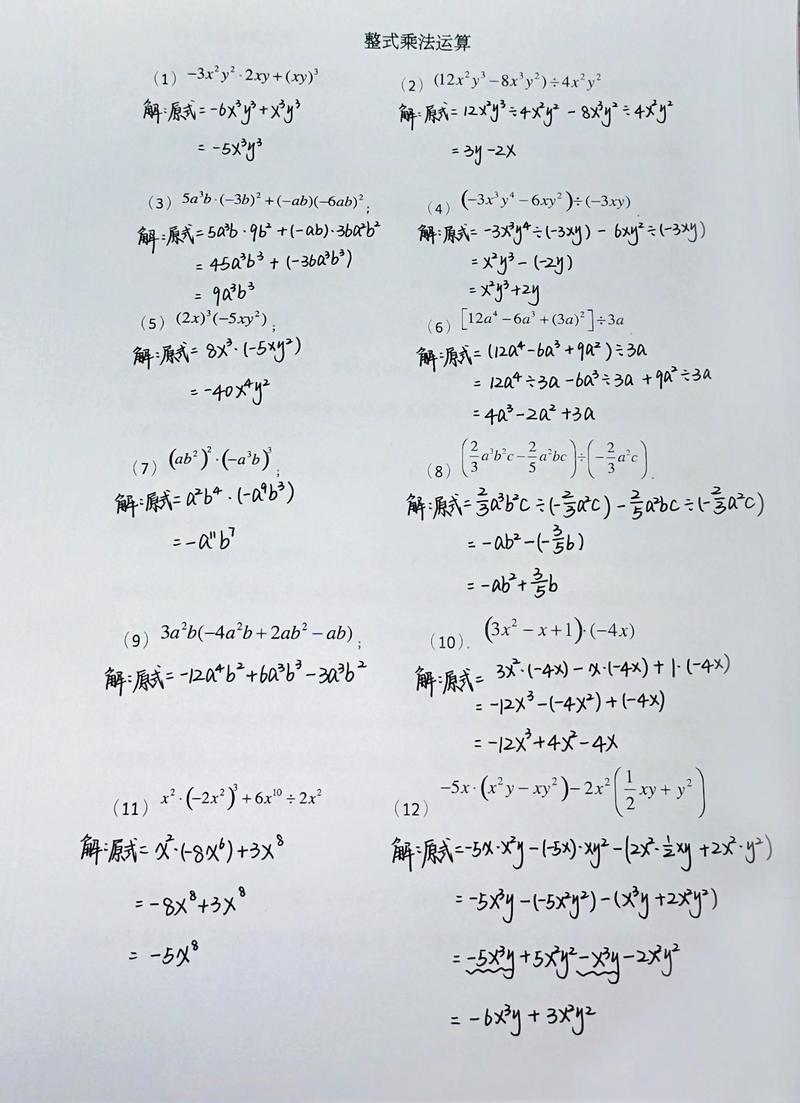 整式乘法运算
(1) -3x²y²·2xy+(xy)³
解:原式=-6x³y³+x³y³
=-5x³y³
(2) (12x²y³-8x³y²)÷4x²y²
解:原式=12x²y³÷4x²y²-8x³y²÷4x²y²
=3y-2x
(3) 5a³b·(-3b)²+(-ab)(-6ab)²;
解:原式=5a³b·9b²+(-ab)·36a²b²
=45a³b³+(-36a³b³)
=9a³b³
(4) (-3x³y⁴-6xy²)÷(-3xy)
解:原式=-3x³y⁴÷(-3xy)-6xy²÷(-3xy)
=x²y³-(-2y)
=x²y³+2y
(5) (2x)³(-5xy²);
解:原式=8x³·(-5xy²)
=-40x⁴y²
(6) [12a⁴-6a³+(3a)²]÷3a
解:原式=(12a⁴-6a³+9a²)÷3a
=12a⁴÷3a-6a³÷3a+9a²÷3a
=4a³-2a²+3a
(7) (ab²)²·(-a³b)³;
解:原式=a²b⁴·(-a⁹b³)
=-a¹¹b⁷
(8) (2/3a³b²c-2/5a²bc)÷(-2/3a²c).
解:原式=2/3a³b²c÷(-2/3a²c)-2/5a²bc÷(-2/3a²c)
=-ab²-(-3/5b)
=-ab²+3/5b
(9) 3a²b(-4a²b+2ab²-ab);
解:原式=-12a⁴b²+6a³b³-3a³b²
(10). (3x²-x+1)·(-4x)
解:原式=3x²·(-4x)-x·(-4x)+1·(-4x)
=-12x³-(-4x²)+(-4x)
=-12x³+4x²-4x
(11) x²·(-2x²)³+6x¹⁰÷2x²
解:原式=x²·(-8x⁶)+3x⁸
=-8x⁸+3x⁸
=-5x⁸
(12) -5x·(x²y-xy²)-2x²(1/2xy+y²)
解:原式=-5x·x²y-(-5x)·xy²-(2x²·1/2xy+2x²·y²)
=-5x³y-(-5x²y²)-(x³y+2x²y²)
=-5x³y+5x²y²-x³y-2x²y²
=-6x³y+3x²y²